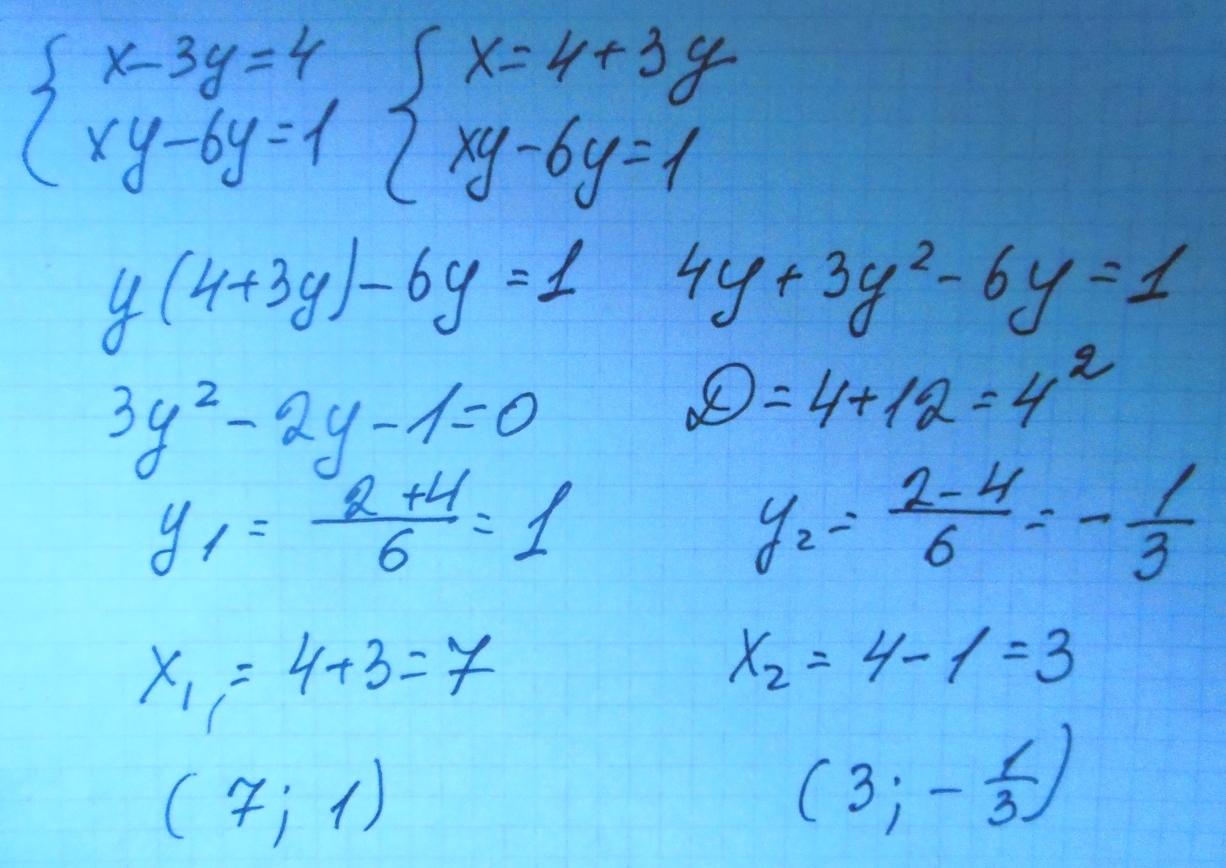 { x-3y=4 { x=4+3y
xy-6y=1 xy-6y=1
y(4+3y)-6y=1 4y+3y²-6y=1
3y²-2y-1=0 D=4+12=4²
y₁ = (2+4)/6 = 1 y₂ = (2-4)/6 = -1/3
x₁ = 4+3=7 x₂ = 4-1=3
(7; 1) (3; -1/3)